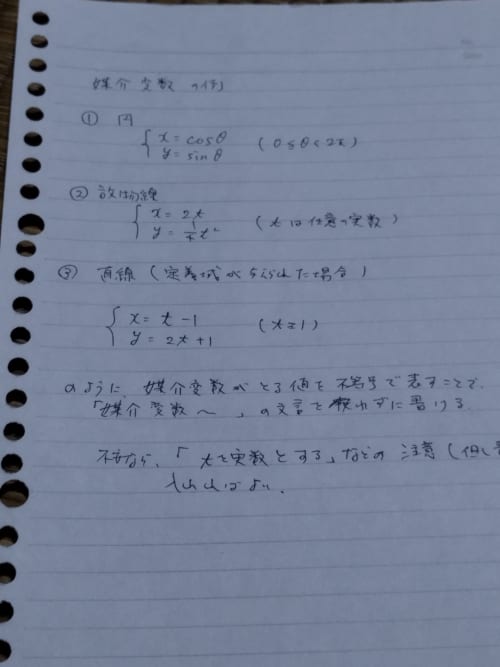 媒介変数の例
① 円
{ x = cosθ
y = sinθ (0 ≤ θ < 2π)
② 放物線
{ x = 2t
y = t² (tは任意の実数)
③ 直線 (定義域が与えられた場合)
{ x = t - 1
y = 2t + 1 (t ≥ 1)
のように、媒介変数がとる値を不等号で表すことで、
「媒介変数〜」の文言を使わずに書ける.
不安なら、「tを実数とする」などの注意(但し
入れればよい.